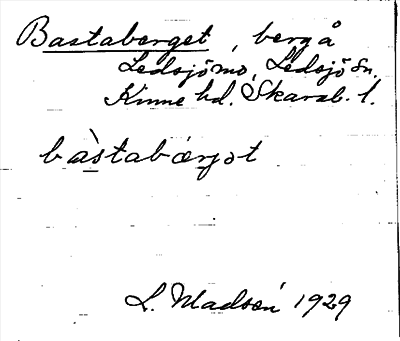 Bastaberget, berg å
Ledsjömo, Ledsjö sn.
Kinne hd. Skarab. l.
bàstabærjet
L. Madsén 1929